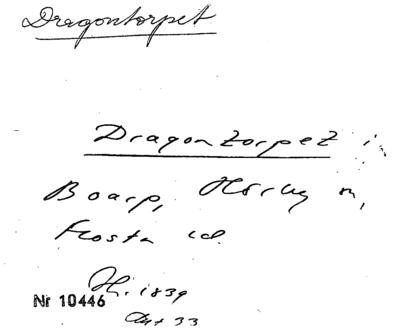 Dragontorpet
Dragontorpet i
Boarp, Hörby sn,
Frosta hd.
H. 1839
Nr 10446
Akt 33